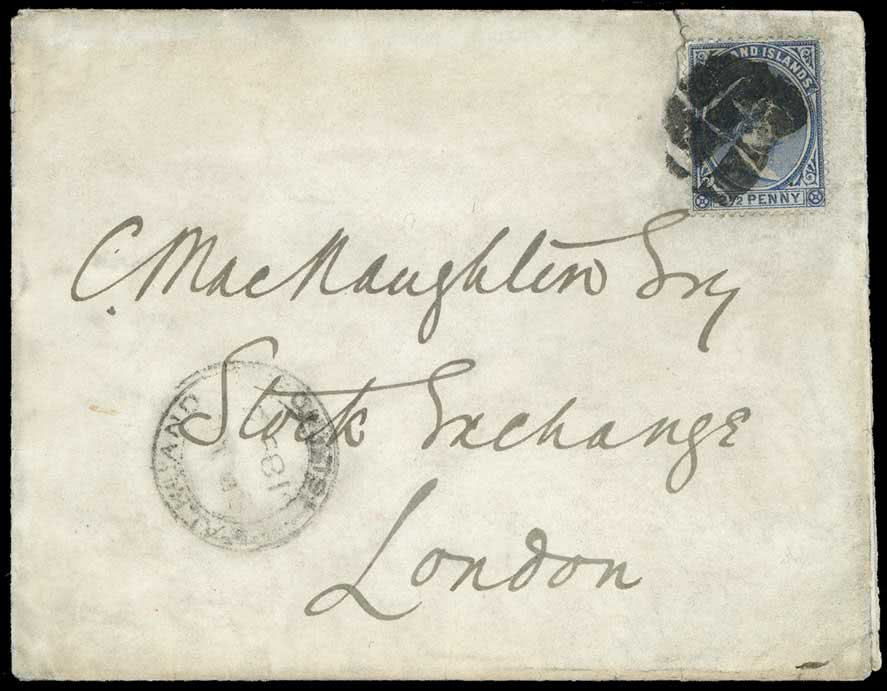 AND ISLANDS
2½ PENNY
C. MacNaughten Esq
Stock Exchange
London
FALKLAND ISLANDS